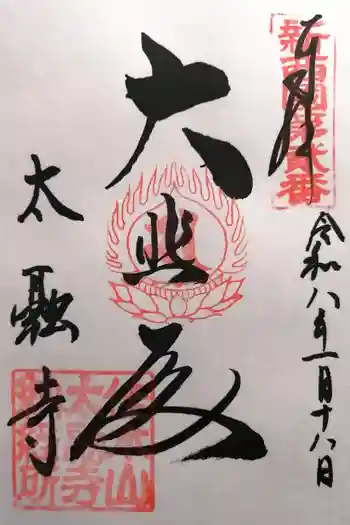 奉拝
新西国第弐番
令和八年一月十八日
大悲殿
太融寺
佳木山
太融寺
納経所